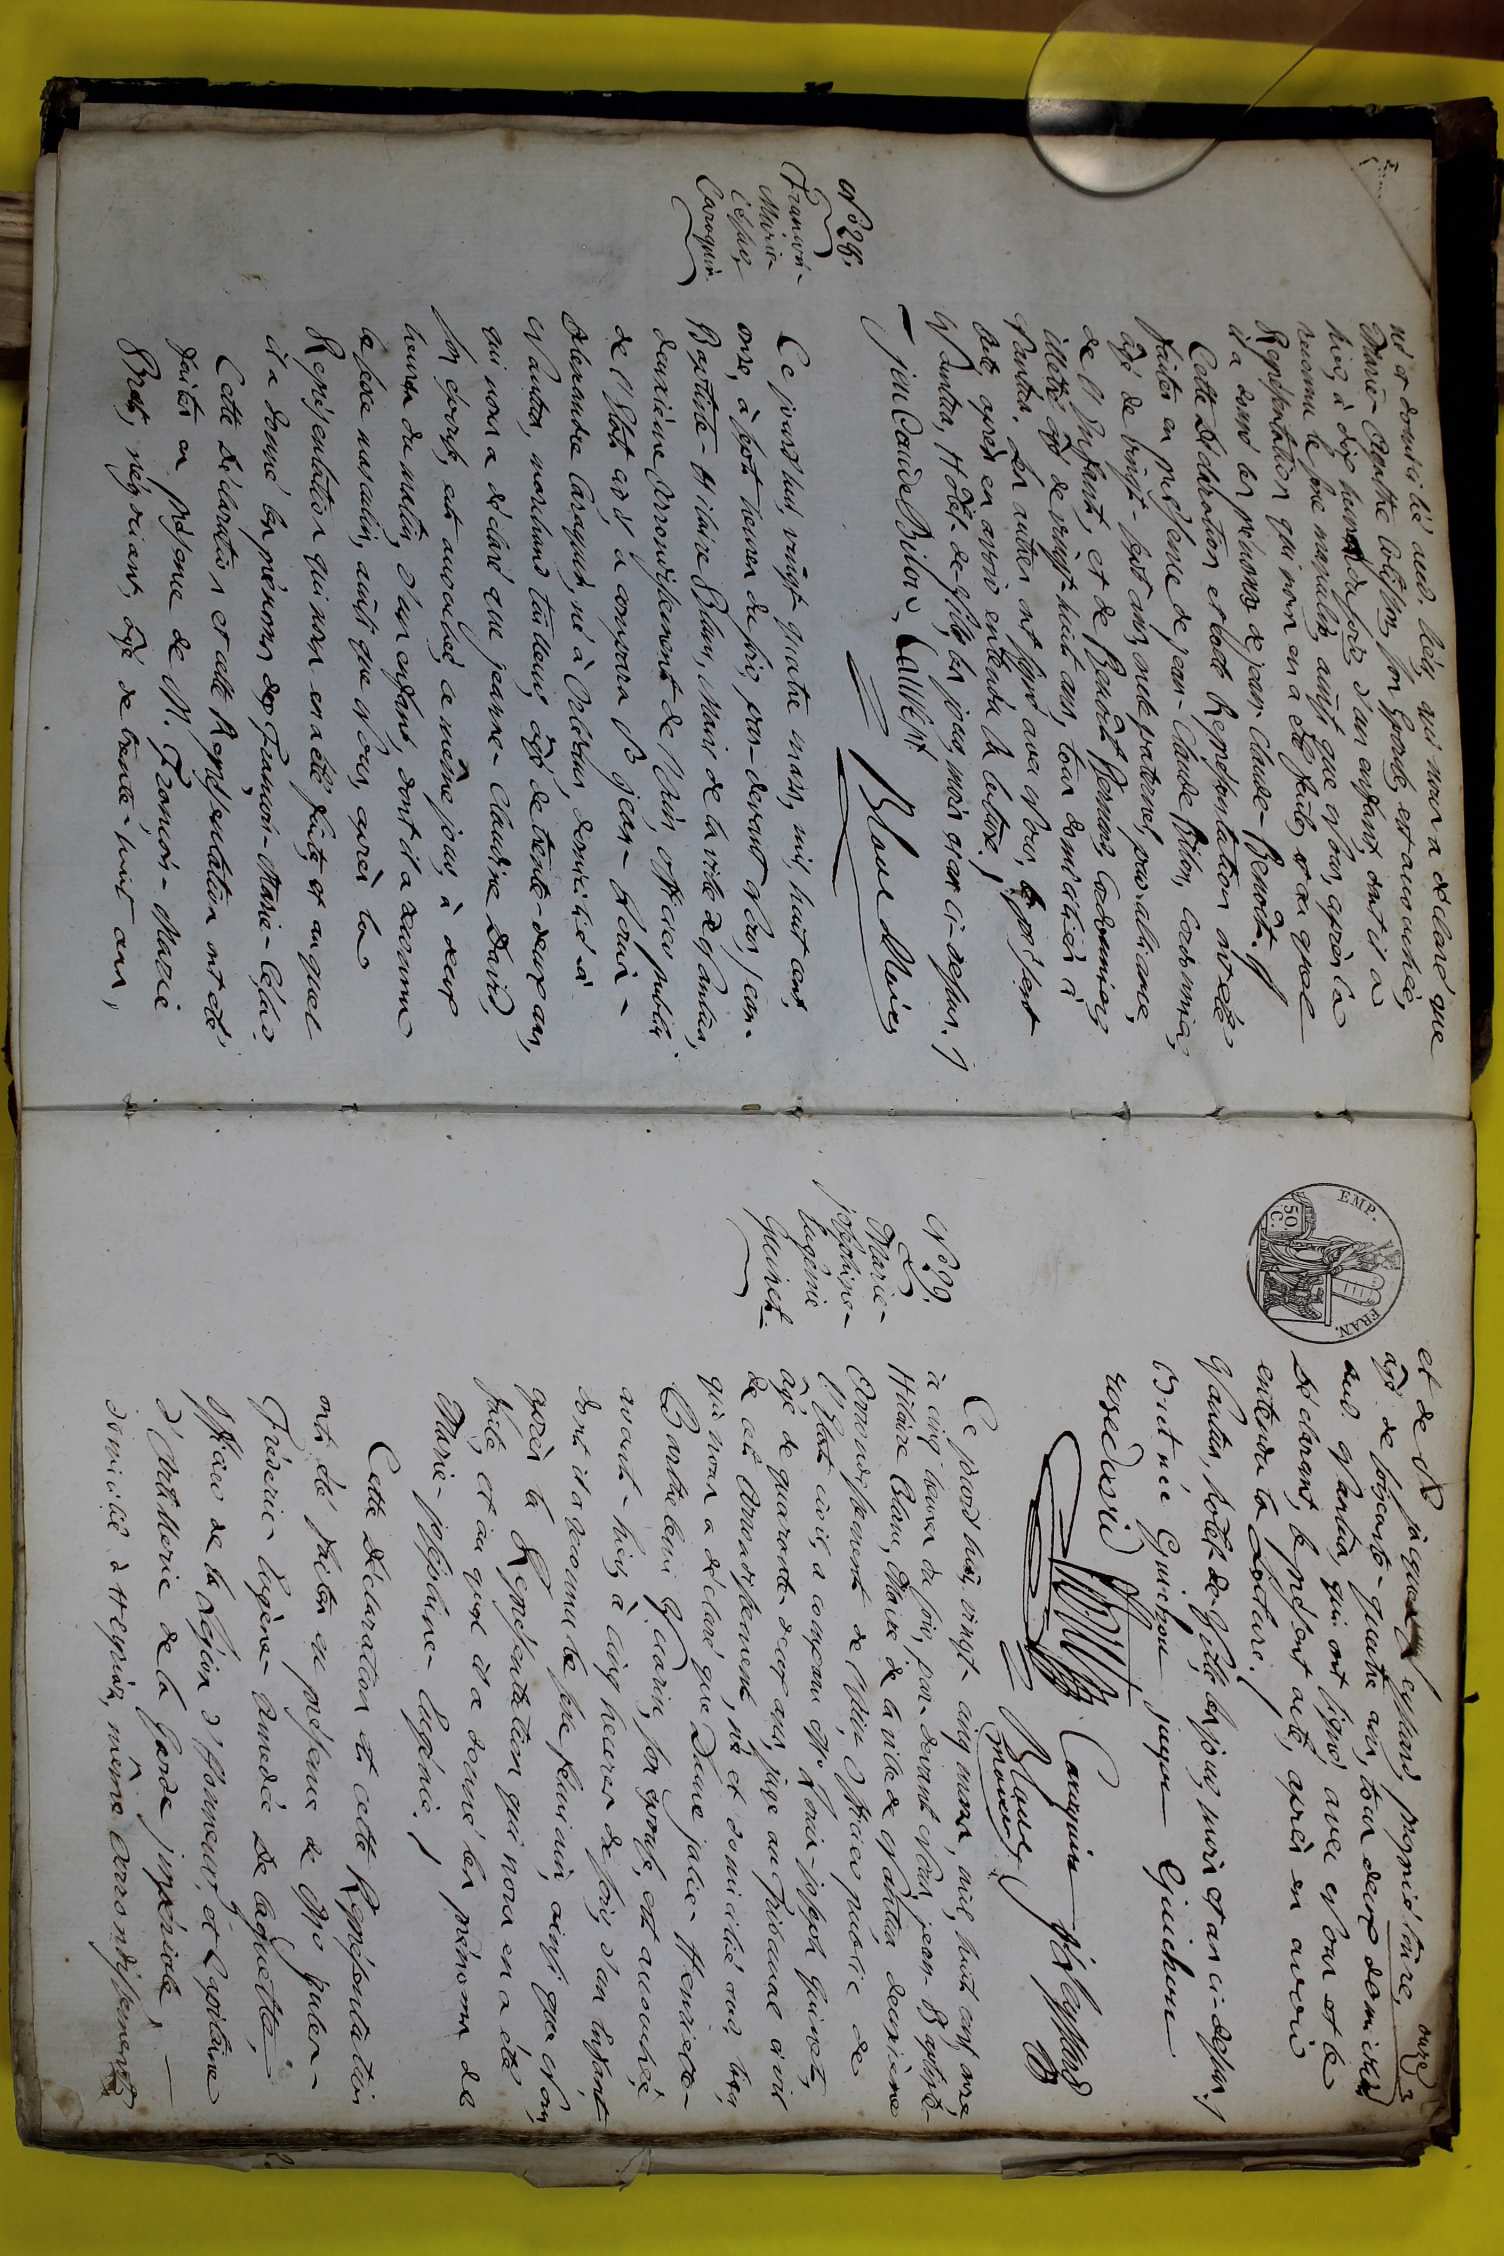 né et domicilié aud. lieu, qui nous a déclaré que
Marie-Agathe son Epouse, est accouchée,
hier, à dix heures de soir, d'un enfant, dont il a
reconnu le sexe masculin, ainsi que Nous, après la
Représentation qui nous en a été faite, et au quel
il a donné les prénoms de jean-Claude-Benoit.
Cette Déclaration et cette Représentation ont été
faites en présence de jean-Claude Bilon, 
âgé de vingt-sept ans, oncle paternel, par alliance,
de l'Enfant, et de Benoit Cordonnier
illetré, âgé de vingt-huit ans, tous domiciliés à
Nantua. Les autres ont signé, avec Nous, le présent
acte, après en avoir entendu la lecture.
A Nantua, Hôtel-de-Ville, les jour, mois et an ci-dessus.
jean Claude Bilon, Callisst
Blanc Maire
N.° 28.
François-
Marie-
César
Caroquin
Ce jourd'hui, vingt quatre mars, mil, huit cent,
onze, à sept heures du soir, par-devant Nous, jean-
Baptiste-Hilaire Blanc, Maire de la ville de Nantua,
deuxième Arrondissement de l'Ain, officier public
de l'Etat civil, a comparu Sr jean-Louis-
Alexandre Caroquin, né à Orléans, domicilié à
Nantua, marchand tailleur, âgé de trente-deux ans,
qui nous a déclaré que jeanne-Claudine David,
son épouse, est accouchée, ce même jour, à deux
heures du matin, d'un enfant, dont il a reconnu
le sexe masculin, ainsi que Nous, après la
Représentation qui nous en a été faite, et au quel
il a donné les prénoms de François-Marie-César.
Cette Déclaration et cette Représentation ont été
faites en présence de M. François-Marie
Bret, négociant, âgé de trente-huit ans,
EMP. FRAN.
50 C.
onze
et de S.r jacques Leyssard, propriétaire,
âgé de soixante-quatre ans, tous deux domiciliés
aud. Nantua, qui ont signé, avec Nous et le
Déclarant, le présent acte, après en avoir
entendu la Lecture.
Nantua, hôtel-de-Ville, les jour, mois et an ci-dessus.
Bret née Guichon jaque Guichon
rose David Caroquin j.s Leyssard
Blanc,
maire
N.° 29.
Marie-
joséphine-
Eugénie
Guinet
Ce jourd'hui, vingt-cinq mars, mil, huit cent, onze,
à cinq heures du soir, par-devant Nous, jean-Baptiste-
Hilaire Blanc, Maire de la ville de Nantua, deuxième
Arrondissement de l'Ain, officier public de
l'Etat civil, a comparu M.r Louis-joseph Guinet,
âgé de quarante-deux ans, juge au Tribunal civil
de cet Arrondissement, né et domicilié aud. lieu,
qui nous a déclaré que Dame julie-Henriette-
Barthelemi son épouse, est accouchée,
avant-hier, à cinq heures de soir, d'un Enfant
dont il a reconnu le sexe féminin, ainsi que Nous,
après la Représentation qui nous en a été
faite, et au quel il a donné les prénoms de
Marie-joséphine-Eugénie.
Cette Déclaration et cette Représentation
ont été faites en présence de M.r 
Frédéric-Eugène-Amédée De
officier de la Légion d'Honneur, et Capitaine
d'Artillerie de la Garde impériale,
domicilié à même Arrondissement